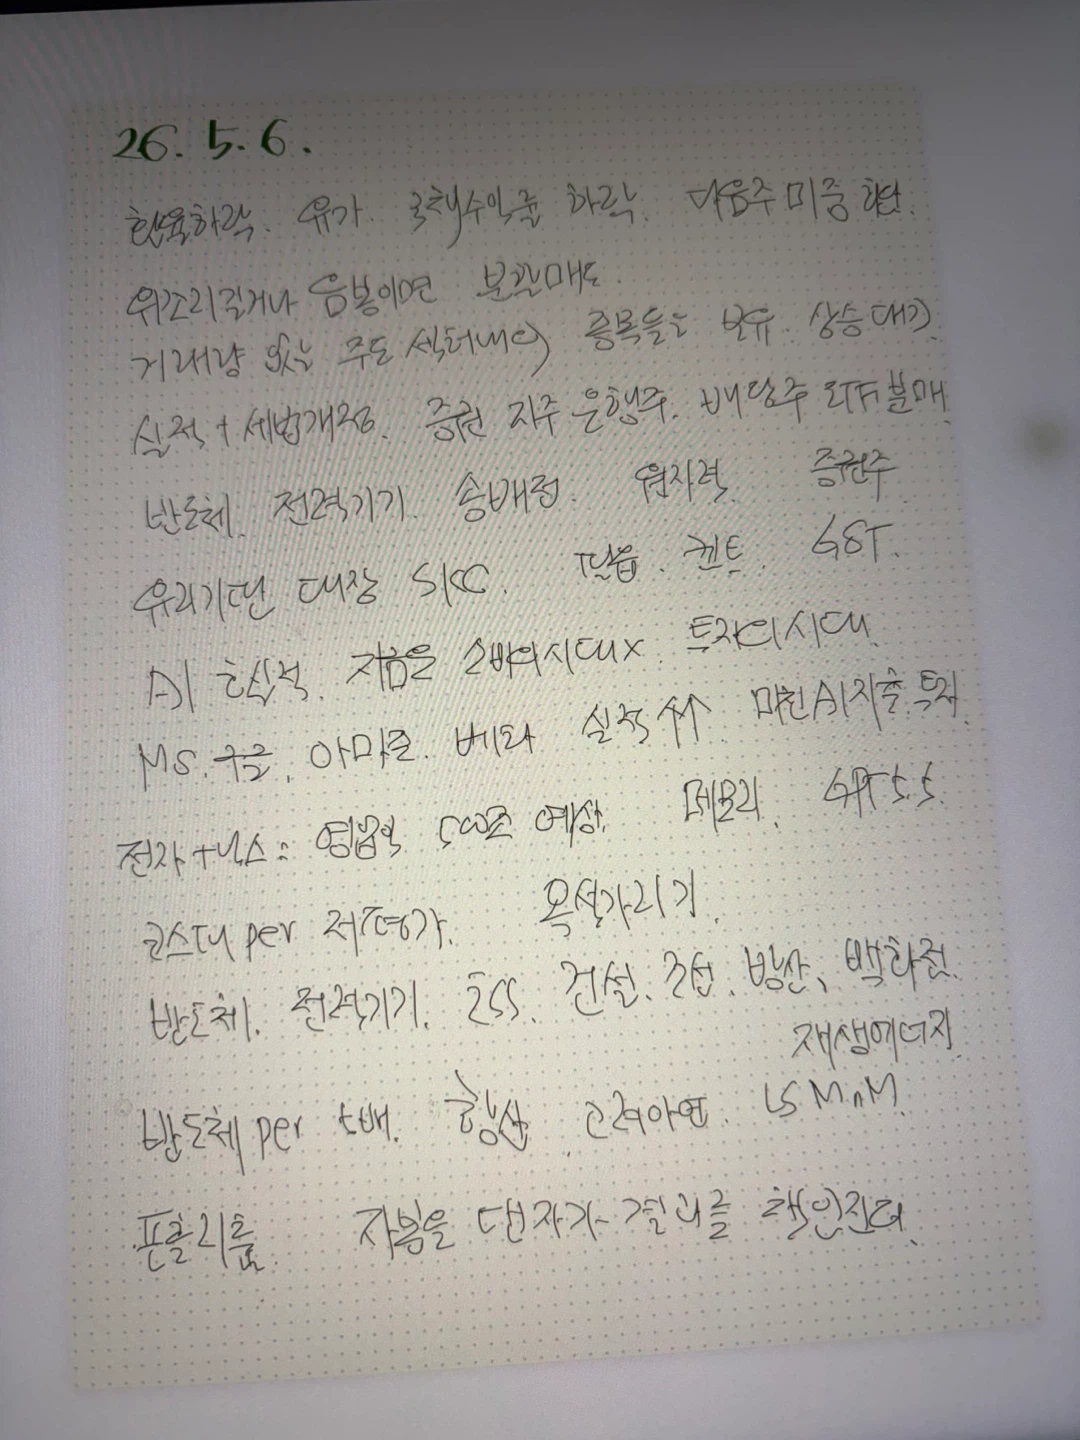 26. 5. 6.
환율하락. 유가. 국채수익률 하락. 다음주 미중 회담.
위꼬리길거나 음봉이면 분할매도.
거래량 없는 주도 섹터내의 종목들은 보유. 상승대기.
실적 + 세법개정. 증권 지주 은행주. 배당주 ETF 분매
반도체. 전력기기. 송배전. 원자력. 증권주
유리기판 대장 SKC. 필옵. 켄트. GST.
AI 호실적. 지금은 소비의시대x. 투자의시대.
MS. 구글. 아마존. 메타 실적 ↑↑ 마친AI지출 투자.
전자+닉스 : 영업익 500조 예상. 메모리. GPT 5.5.
코스피 per 저평가. 옥석가리기.
반도체. 전력기기. ESS. 건설. 조선. 방산, 백화점.
재생에너지.
반도체 per 배. 황산. 고려아연. LS MnM.
자본을 댄자가 결과를 책임진다.